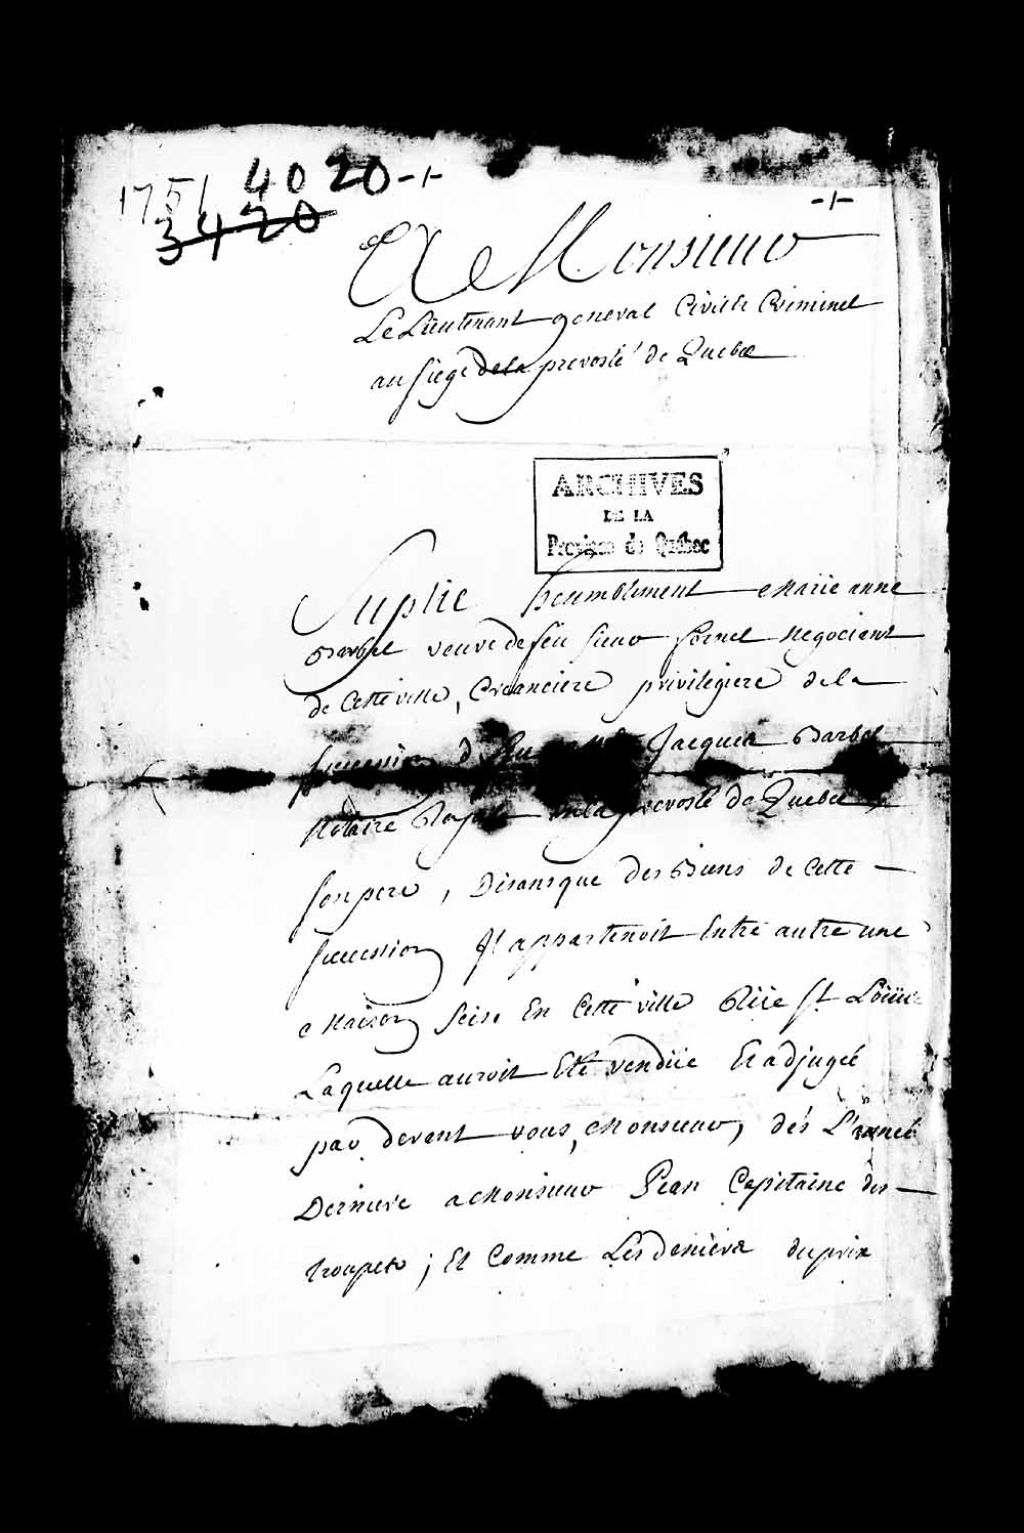 1751 4020 -1-
3420
-1-
A Monsieur
Le Lieutenant general Civil & Criminel
au siege de la prevosté de Quebec
ARCHIVES
DE LA
Province de Québec
Suplie humblement Marie anne
Barbel veuve de feu sieur fornel negociant
de Cette ville, Creanciere privilegiere de la
succession d Jacques Barbel
Notaire Royal En la prevosté de Quebec
son pere, Disant que des Biens de Cette
succession Jl appartenoit Entre autre une
Maison seise En Cette ville Rüe St Loüis
Laquelle auroit Eté vendüe Et adjugée
par devant vous, Monsieur, dés L'année
Derniere a Monsieur Pean Capitaine des
troupes; Et Comme Les deniers du prix